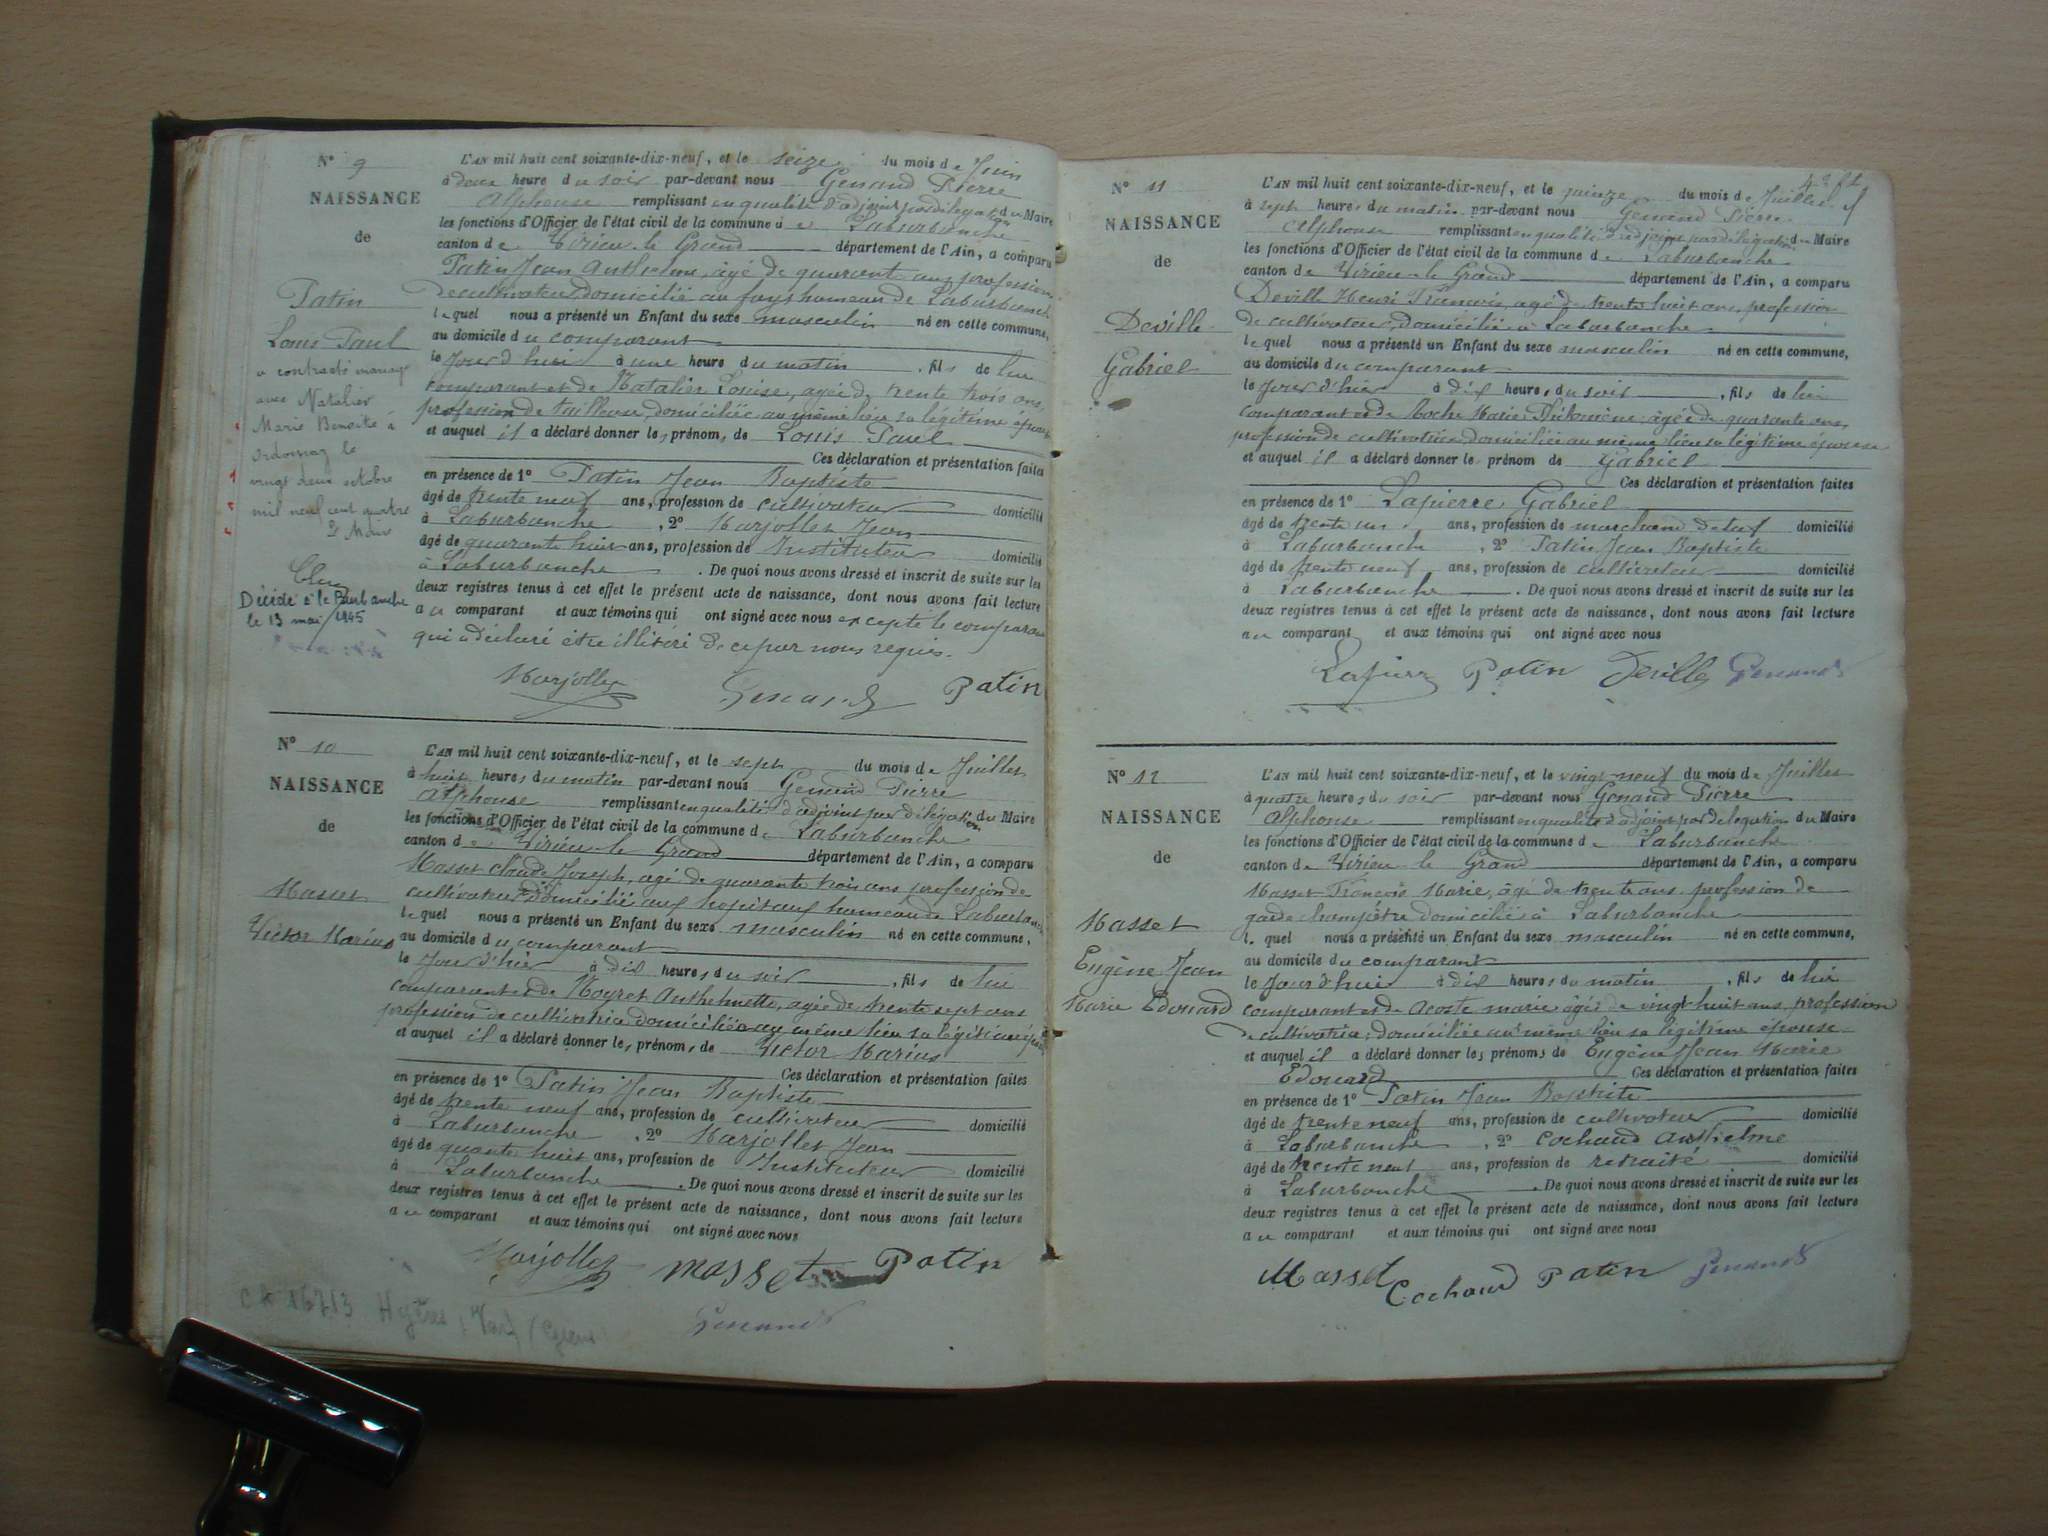 N° 9
NAISSANCE
de
Patin
Louis Paul
a contracté mariage
avec Natalier
Marie Benoite à
Ordonnaz le
vingt deux octobre
mil neuf cent quatre
Le Maire
Décédé à la Burbanche
le 13 mai 1945
L'AN mil huit cent soixante-dix-neuf, et le seize du mois de Juin
à deux heure du soir par-devant nous Genand Pierre
Alphonse remplissant en qualité d'adjoint par délégation du Maire
les fonctions d'Officier de l'état civil de la commune de Laburbanche
canton de Virieu-le-Grand département de l'Ain, a comparu
Patin Jean Anthelme, âgé de quarante ans, profession
de cultivateur, domicilié au fays hameau de Laburbanche
lequel nous a présenté un Enfant du sexe masculin né en cette commune,
au domicile du comparant
le Jour d'hui à une heure du matin, fils de lui
comparant et de Natalier Louise, agée de trente trois ans,
profession de tailleuse, domiciliée au même lieu sa légitime épouse
et auquel il a déclaré donner les prénoms de Louis Paul
Ces déclaration et présentation faites
en présence de 1° Patin Jean Baptiste
âgé de trente neuf ans, profession de cultivateur domicilié
à Laburbanche, 2° Marjollet Jean
âgé de quarante huit ans, profession de Instituteur domicilié
à Laburbanche. De quoi nous avons dressé et inscrit de suite sur les
deux registres tenus à cet effet le présent acte de naissance, dont nous avons fait lecture
au comparant et aux témoins qui ont signé avec nous excepté le comparant
qui a déclaré être illitéré de ce par nous requis.
Marjollet Genand Patin
N° 10
NAISSANCE
de
Masset
Victor Marius
L'AN mil huit cent soixante-dix-neuf, et le sept du mois de Juillet
à huit heures du matin par-devant nous Genand Pierre
Alphonse remplissant en qualité d'adjoint par délégation du Maire
les fonctions d'Officier de l'état civil de la commune de Laburbanche
canton de Virieu-le-Grand département de l'Ain, a comparu
Masset Claude Joseph, agé de quarante trois ans profession de
cultivateur domicilié aux hopitaux hameau de Laburbanche
lequel nous a présenté un Enfant du sexe masculin né en cette commune,
au domicile du comparant
le Jour d'hier à dix heures du soir, fils de lui
comparant et de Moyret Anthelmette, agée de trente sept ans
profession de cultivatrice domiciliée au même lieu sa légitime épouse
et auquel il a déclaré donner les prénoms de Victor Marius
Ces déclaration et présentation faites
en présence de 1° Patin Jean Baptiste
âgé de trente neuf ans, profession de cultivateur domicilié
à Laburbanche, 2° Marjollet Jean
âgé de quarante huit ans, profession de Instituteur domicilié
à Laburbanche. De quoi nous avons dressé et inscrit de suite sur les
deux registres tenus à cet effet le présent acte de naissance, dont nous avons fait lecture
au comparant et aux témoins qui ont signé avec nous
Marjollet Masset Patin
Genand
Hyères, Var
N° 11
NAISSANCE
de
Deville
Gabriel
L'AN mil huit cent soixante-dix-neuf, et le quinze du mois de Juillet
à sept heures du matin par-devant nous Genand Pierre
Alphonse remplissant en qualité d'adjoint par délégation du Maire
les fonctions d'Officier de l'état civil de la commune de Laburbanche
canton de Virieu-le-Grand département de l'Ain, a comparu
Deville Henri François, agé de trente huit ans, profession
de cultivateur, domicilié à Laburbanche
lequel nous a présenté un Enfant du sexe masculin né en cette commune,
au domicile du comparant
le Jour d'hier à dix heures du soir, fils de lui
comparant et de Roche Marie Philomène agée de quarante ans
profession de cultivatrice domiciliée au même lieu sa légitime épouse
et auquel il a déclaré donner le prénom de Gabriel
Ces déclaration et présentation faites
en présence de 1° Lapierre Gabriel
âgé de trente un ans, profession de marchand domicilié
à Laburbanche, 2° Patin Jean Baptiste
âgé de trente neuf ans, profession de cultivateur domicilié
à Laburbanche. De quoi nous avons dressé et inscrit de suite sur les
deux registres tenus à cet effet le présent acte de naissance, dont nous avons fait lecture
au comparant et aux témoins qui ont signé avec nous
Lapierre Patin Deville Genand
N° 12
NAISSANCE
de
Masset
Eugène Jean
Marie Edouard
L'AN mil huit cent soixante-dix-neuf, et le vingt-neuf du mois de Juillet
à quatre heures du soir par-devant nous Genand Pierre
Alphonse remplissant en qualité d'adjoint par delegation du Maire
les fonctions d'Officier de l'état civil de la commune de Laburbanche
canton de Virieu-le-Grand département de l'Ain, a comparu
Masset François Marie, âgé de trente ans profession de
garde champêtre domicilié à Laburbanche
lequel nous a présenté un Enfant du sexe masculin né en cette commune,
au domicile du comparant
le Jour d'hui à dix heures du matin, fils de lui
comparant et de Acoste marie âgée de vingt huit ans, profession
de cultivatrice, domiciliée au même lieu sa légitime épouse
et auquel il a déclaré donner les prénoms de Eugène Jean Marie
Edouard Ces déclaration et présentation faites
en présence de 1° Patin Jean Baptiste
âgé de trente neuf ans, profession de cultivateur domicilié
à Laburbanche, 2° Cochaud Anthelme
âgé de trente neuf ans, profession de retraité domicilié
à Laburbanche. De quoi nous avons dressé et inscrit de suite sur les
deux registres tenus à cet effet le présent acte de naissance, dont nous avons fait lecture
au comparant et aux témoins qui ont signé avec nous
Masset Cochaud Patin Genand